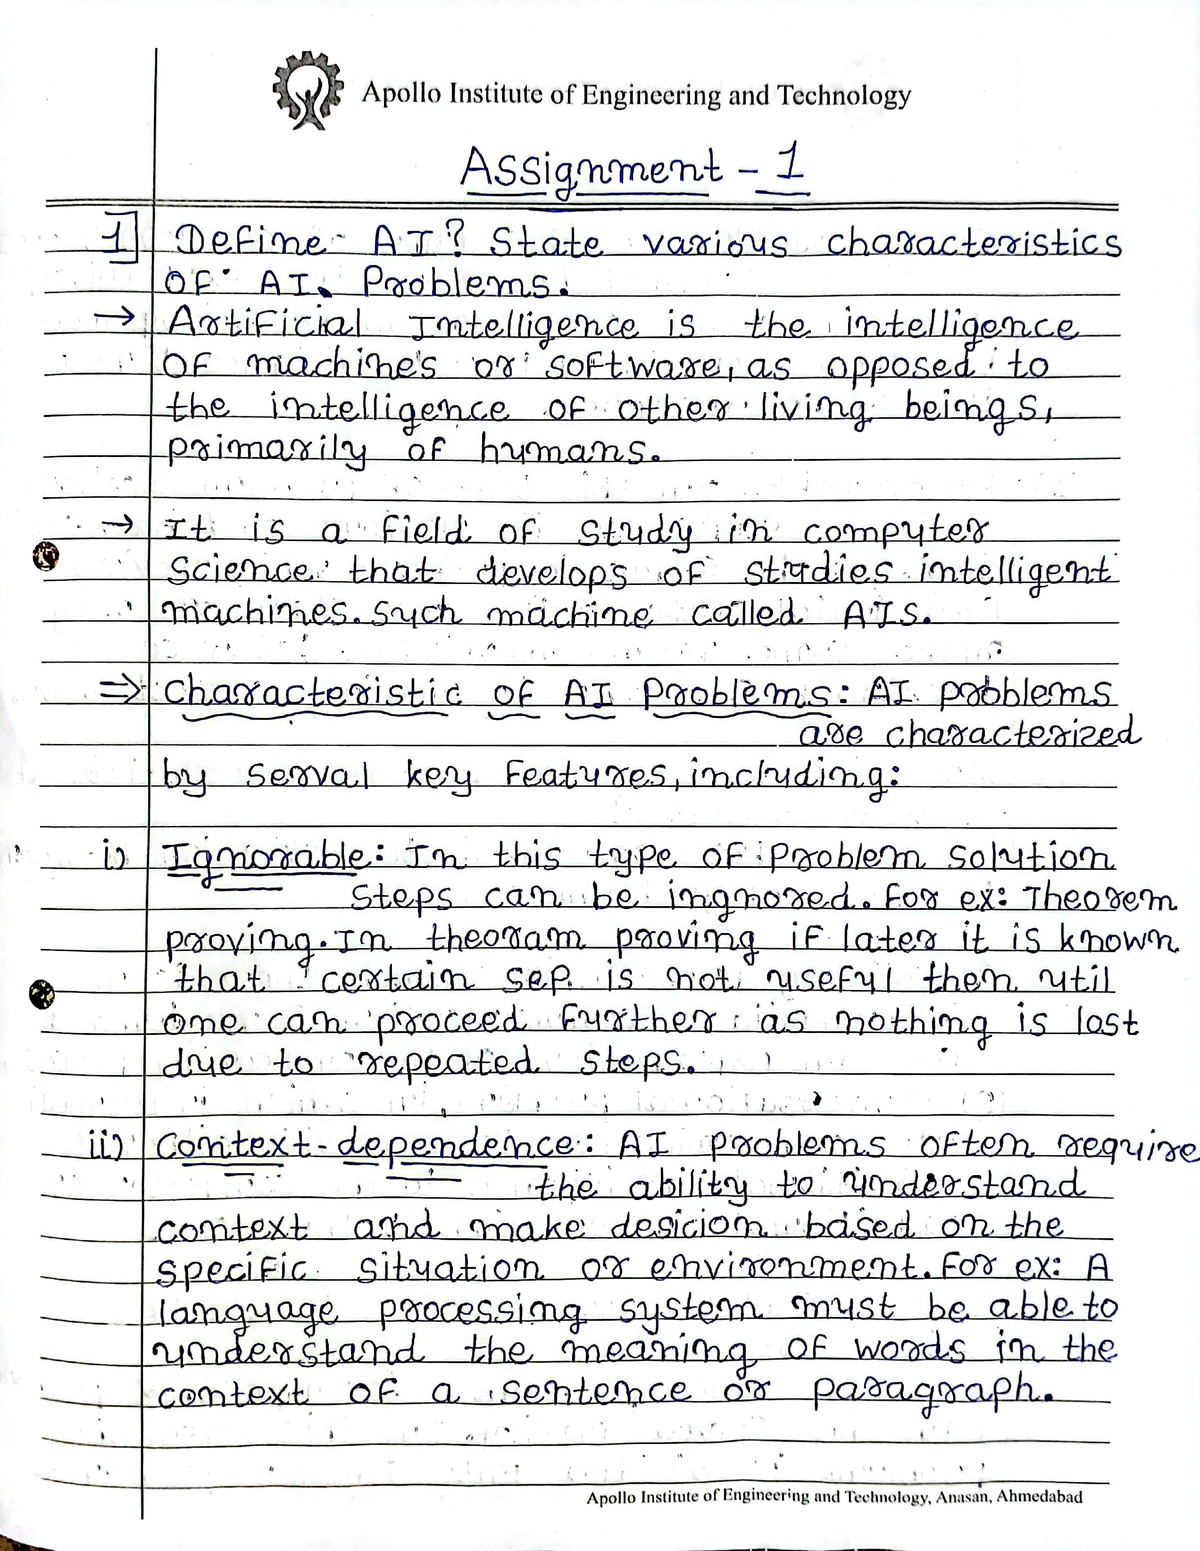 Apollo Institute of Engineering and Technology
Assignment - 1
1] Define AI? State various characteristics
OF AI. Problems.
→ Artificial Intelligence is the intelligence
OF machine's or software, as opposed to
the intelligence of other living beings,
primarily of humans.
→ It is a field of study in computer
Science that develops of studies intelligent
machines. Such machine called AIS.
⇒ Characteristic of AI Problems: AI problems
are characterized
by serval key Features, including:
i) Ignorable: In this type of problem solution
steps can be ingnored. For ex: Theorem
proving. In theoram proving if later it is known
that certain sep. is not useful then util
one can proceed further as nothing is lost
due to repeated steps.
ii) Context-dependence: AI problems often require
the ability to understand
context and make desicion based on the
specific situation or environment. For ex: A
language processing system must be able to
understand the meaning of words in the
context of a sentence or paragraph.
Apollo Institute of Engineering and Technology, Anasan, Ahmedabad